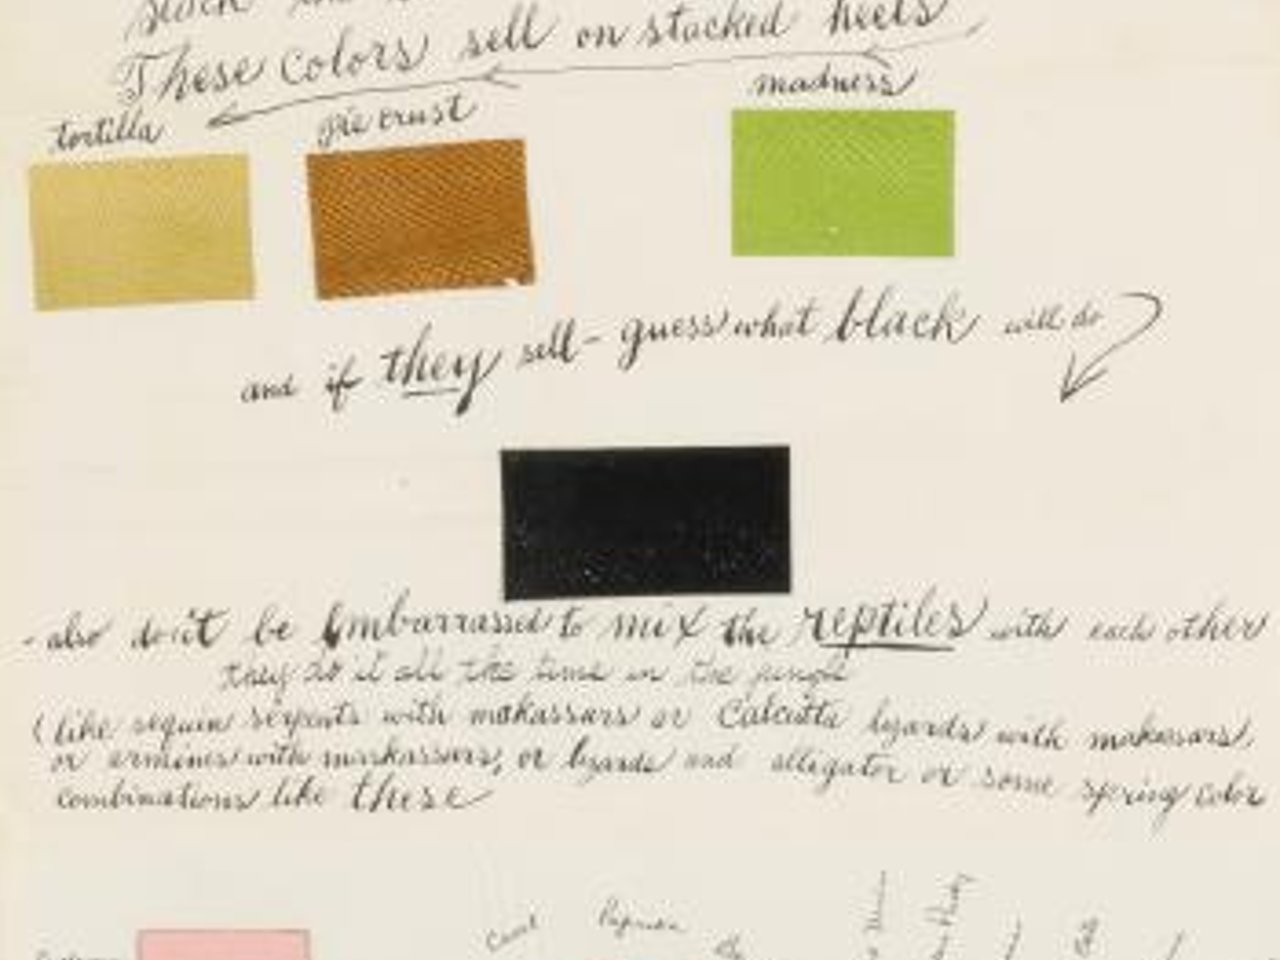 These colors sell on stacked heels
tortilla
pie crust
madness
and if they sell - guess what black will do
- also don't be embarrassed to mix the reptiles with each other
they do it all the time in the jungle
(like sequin serpents with makassars or Calcutta lyzards with makassars,
or ermines with markassars, or lyzards and alligator or some spring color
combinations like these
Paprika